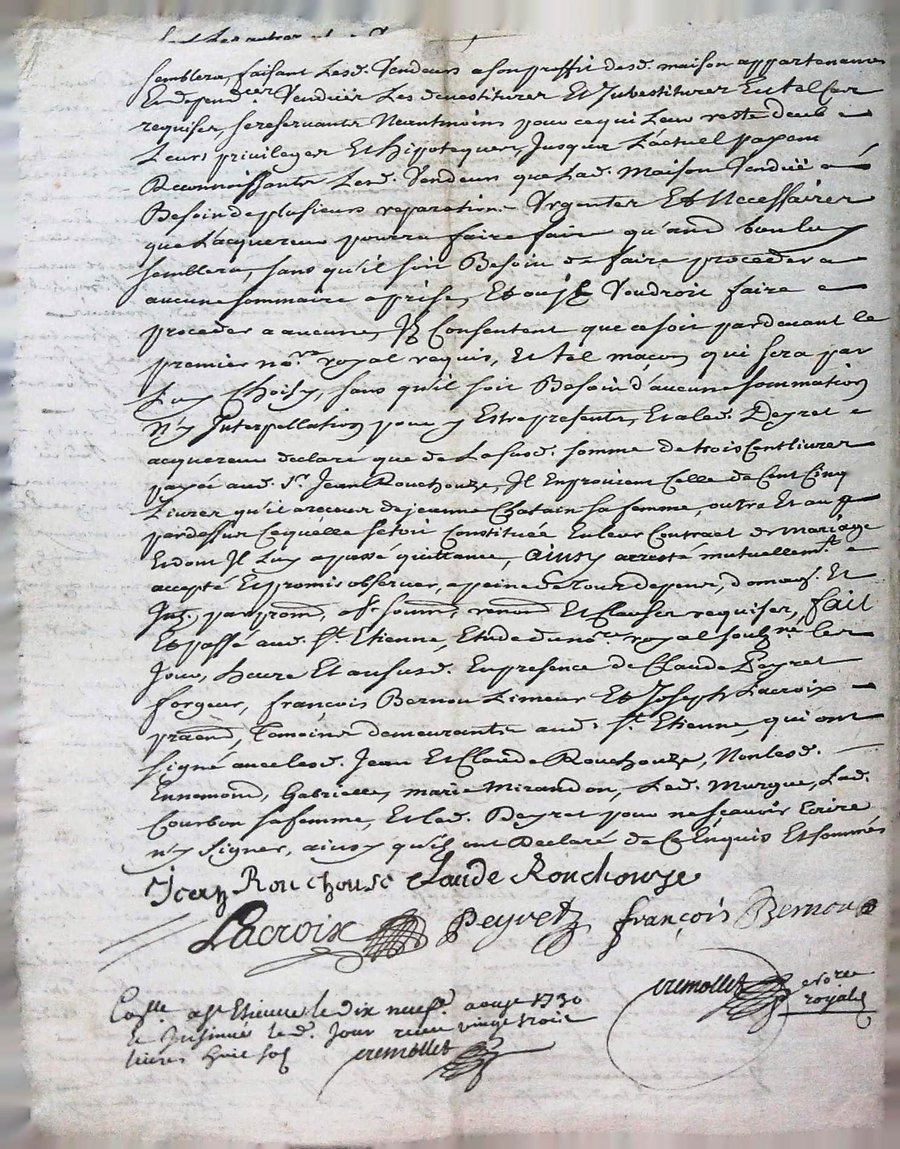 semblera, faisant Lesd. Vendeurs a son proffit desd. maison appartenances
Et depend.ces Vendues Les devestitures Et Investitures En tel cas
requises, se reservants Neantmoins pour ce qui Leur reste deub
Leurs privileges Et hipoteques, Jusques L'actuel payem
Reconnoissants Lesd. Vendeurs que Lad. Maison Venduë a
Besoin de plusieurs reparations Urgentes Et Necessaires
que L'acquereur pourra faire faire quand bon luy
semblera, sans qu'il soit Besoin de faire proceder a
aucune sommaire aprise, Et ou Il Voudroit faire
proceder a aucune, Ils Consentent que ce soit pardevant le
premier no.re royal requis, Et tel maçon qui sera par
Luy Choisy, sans qu'il soit Besoin d'aucune sommation
N'y Interpellation pour y Estre presents, Et a led. Peyret
acquereur declaré que de La susd. somme de trois Cent livres
payée aud. Sr. Jean Rouchouze, Il En provient Celle de Cent Cinq
Livres qu'il a receue de jeanne Chatain sa femme, outre Et au
pardessus Ce qu'elle s'etoit Constituée En leur Contract de mariage
Et dont Il Luy a passé quittance, ainsy arresté mutuellem.t
accepté Et promis observer, a peine de tous depens, domag. Et
Int. par prom, ss. soum, renon Et Clauses requises, fait
Et passé aud. St. Etienne, Etude du no.re royal soubz.né Les
Jour, heure Et an susd. En presence de Claude Peyret
forgeur, françois Bernou Limeur Et Joseph Lacroix
praticien, Temoins demeurants aud. St. Etienne, qui ont
signé avec lesd. Jean Et Claude Rouchouze, Non lesd.
Ennemond, Gabrielle, marie Mirandon, Led. Murgue, Lad.
Courbon sa femme, Et led. Peyret pour ne sçavoir Ecrire
n'y signer, ainsy qu'ils ont Declaré de Ce Enquis Et sommés
Jean Rouchouse Claude Rouchouze
Lacroix Peyret françois Bernou
cremollet no.re
royal
Con.lle a St Etienne le dix neuf.e aoust 1730
et Insinué led. Jour receu vingt trois
livres huit sols cremollet